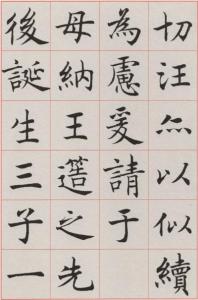 切汪亾以似續
為慮爰請于
母納王簉之先
後誕生三子一